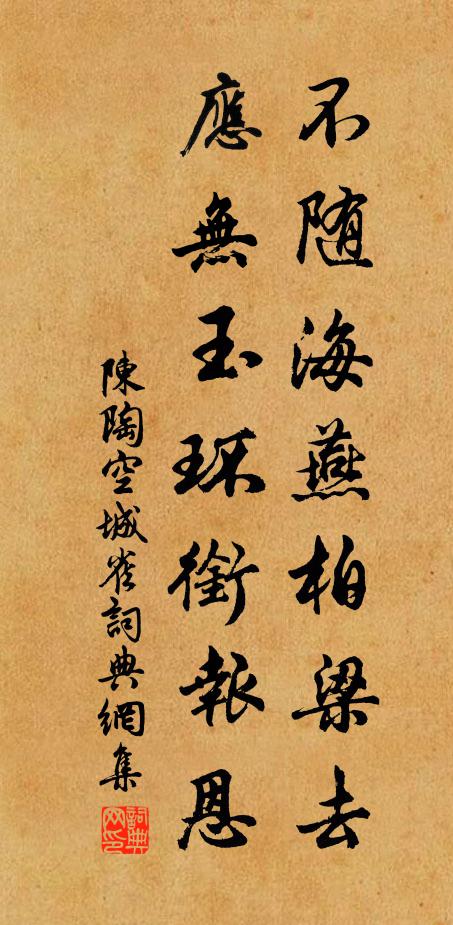 不随海燕柏梁去
應無玉环銜報恩
陳陶空城雀詞典網集
詞典网印